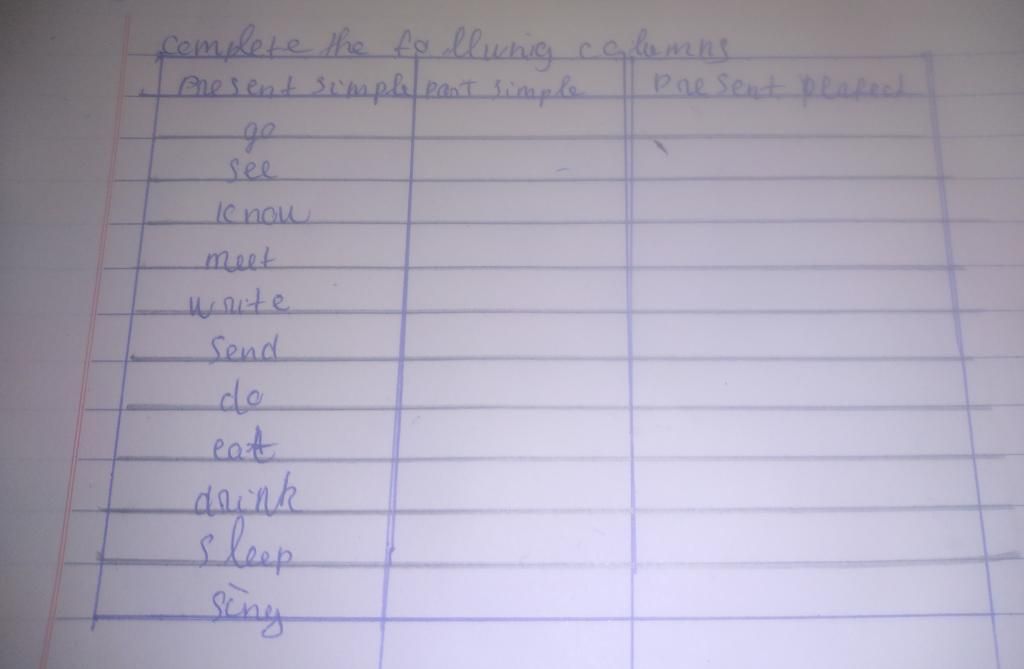 complete the following columns
present simple past simple present perfect
go
see
know
meet
write
send
do
eat
drink
sleep
sing